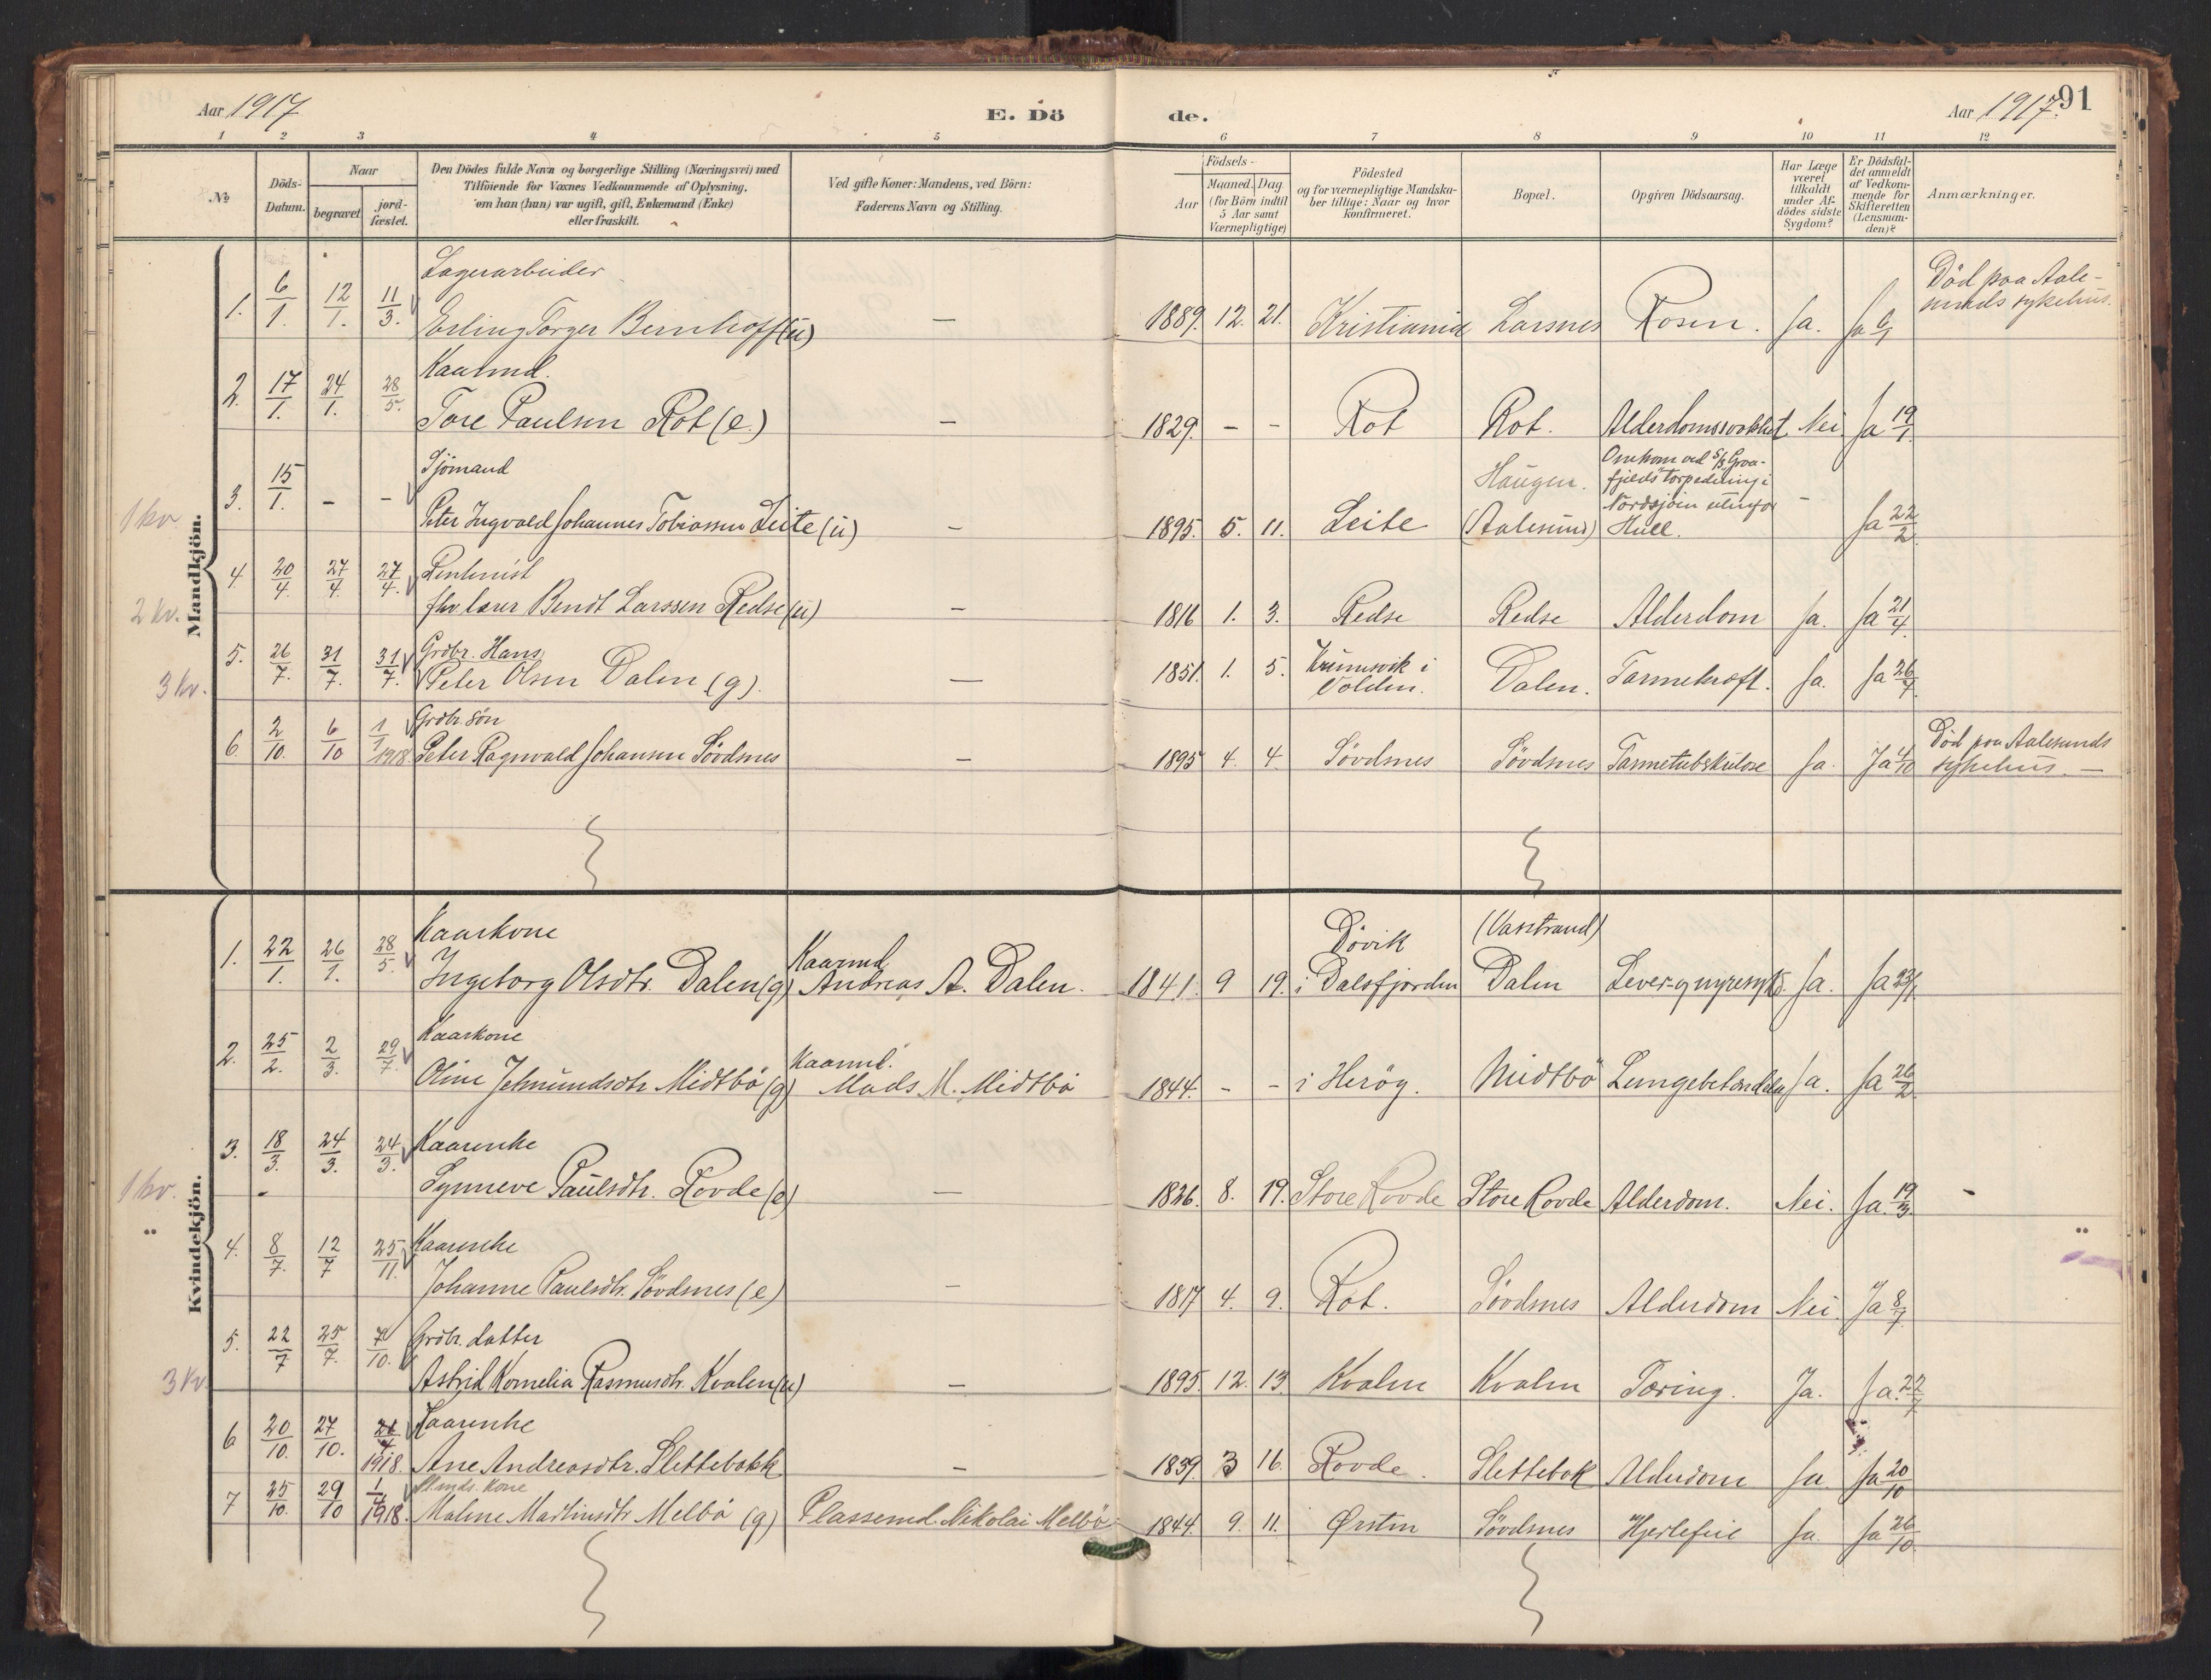 Aar 1917
E. Dö
de.
Aar 1917.
91
1 2 3 4 5 6 7 8 9 10 11 12
No
Döds-Datum.
Naar
begravet
jord-fæstet.
Den Dödes fulde Navn og borgerlige Stilling (Næringsvei) med
Tilföiende for Voxnes Vedkommende af Oplysning,
om han (hun) var ugift, gift, Enkemand (Enke)
eller fraskilt.
Ved gifte Koner: Mandens, ved Börn:
Faderens Navn og Stilling.
Födsels-
Aar
Maaned. Dag
(for Börn indtil
5 Aar samt
Værnepligtige)
Födested
og for værnepligtige Mandska-
ber tillige: Naar og hvor
konfirmeret.
Bopæl.
Opgiven Dödsaarsag.
Har Læge
været
tilkaldt
under Af-
dödes sidste
Sygdom?
Er Dödsfal-
det anmeldt
af Vedkom-
mende for
Skifteretten
(Lensman-
den)?
Anmærkninger.
Mandkjön.
Lagerarbeider
Död paa Aale-
sunds sykehus.
1. 6/1. 12/1. 11/3. Erling Torger Bernhoff (u) — 1889. 12. 21. Kristiania Larsnes Rosen. Ja. Ja 6/1
Kaarmd.
2. 17/1. 24/1. 28/5. Tore Paulsen Rot (e.) — 1829. - - Rot Rot. Alderdomssvakhet Nei Ja 19/1.
Sjömand
Omkom ved S/S Groa-
Haugen. fjelds torpedering i
Nordsjöen utenfor
1 kv.
3. 15/1. - - Peter Ingvald Johannes Tobiassen Leite (u) — 1895. 5. 11. Leite (Aalesund) Hull. - Ja 22/2.
Pentenist
4. 20/4. 27/4. 27/4. fhv lærer Bendt Larssen Redse (u) — 1816 1. 3. Redse Redse Alderdom Ja. Ja 21/4.
2 kv.
Grdbr. Hans
Krumsvik i
5. 26/7. 31/7. 31/7. Peter Olsen Dalen (g). — 1851. 1. 5. Volden. Dalen. Tarmekræft. Ja. Ja 26/7.
3 kv.
Grdbr sön
Död paa Aalesunds
6. 2/10. 6/10 1/1 1918. Peter Ragnvald Johansen Sövdsnes — 1895 4. 4. Sövdsnes Sövdsnes Tarmetuberkulose Ja. Ja 4/10 sykehus. —
Kvindekjön.
Kaarkone
Kaarmd
Dövik
(Vasstrand)
1. 22/1. 26/1. 28/5. Ingeborg Olsdtr. Dalen (g) Andreas A. Dalen. 1841. 9 19. i Dalsfjorden Dalen Lever- og nyresyke. Ja. Ja 23/1
Kaarkone
Kaarmd.
2. 25/2. 2/3. 29/7. Oline Jetmundsdtr Midtbö (g) Mads M. Midtbö 1844. - - i Heröy. Midtbö Lungebetændelse Ja. Ja 26/2
Kaarenke
3. 18/3. 24/3. 24/3. Synneve Paulsdtr. Rovde (e) — 1826. 8. 19. Store Rovde Store Rovde Alderdom. Nei. Ja. 19/3.
1 kv.
Kaarenke
4. 8/7. 12/7 25/11. Johanne Paulsdtr. Sövdsnes (e) — 1817 4. 9. Rot. Sövdsnes Alderdom Nei. Ja 8/7.
Grdbr. datter
5. 22/7 25/7. 7/10. Astrid Kornelia Rasmusdtr. Kvalen (u) — 1895. 12. 13. Kvalen Kvalen Tæring. Ja. Ja. 22/7
3 kv.
Kaarenke
6 20/10. 27/10. 1918. Ane Andreasdtr. Slettebakk — 1839. 3 16. Rovde. Slettebak Alderdom Ja. Ja 20/10
Plmds. kone
7 25/10. 29/10 1918. Malene Martinusdtr Melbö (g) Plassemd. Nikolai Melbö 1844. 9. 11. Ørsten Sövdsnes Hjertefeil Ja. Ja 26/10